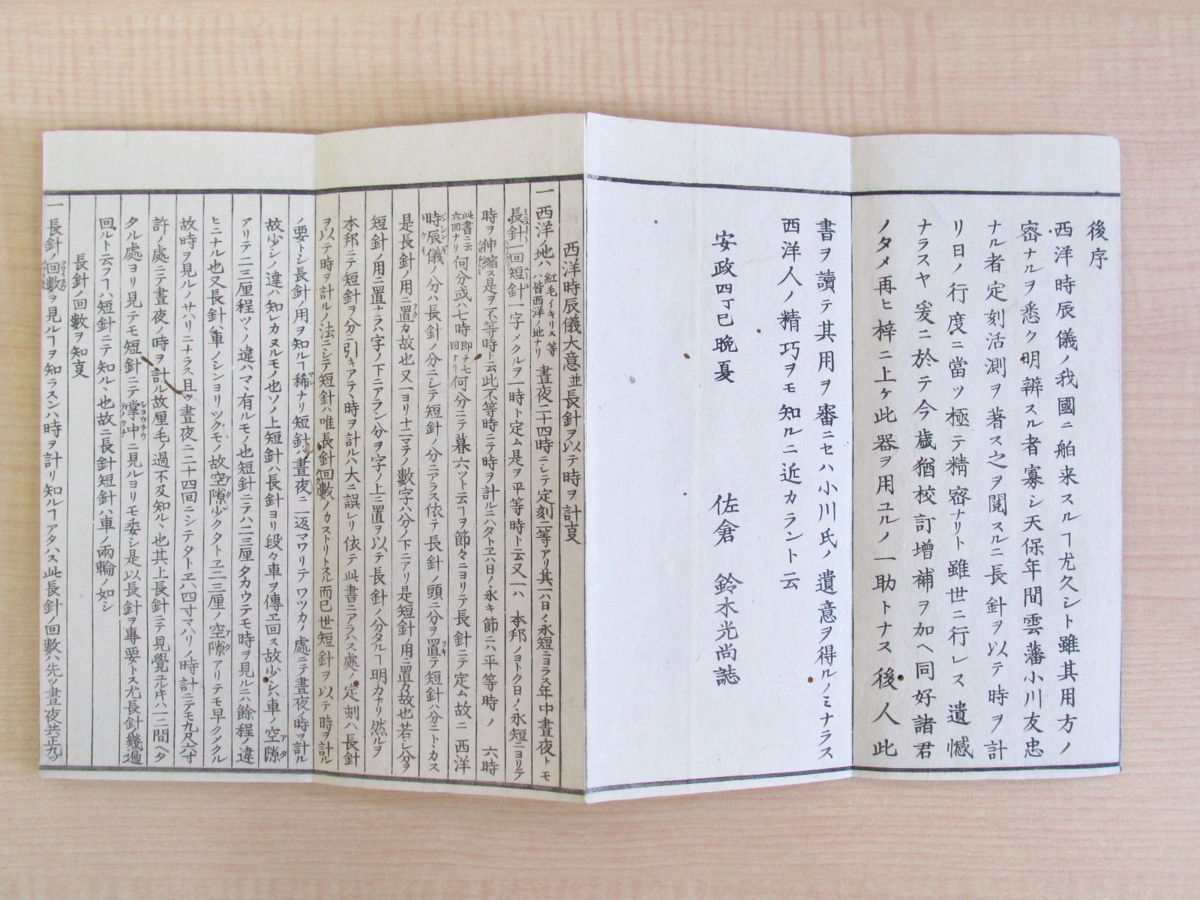 後序
西洋時辰儀ノ我國ニ舶来スルヿ尤久シト雖其用方ノ
密ナルヲ悉ク明辨スル者寡シ天保年間雲藩小川友忠
ナル者定刻活測ヲ著ス之ヲ閲スルニ長針ヲ以テ時ヲ計
リ日ノ行度ニ當ツ極テ精密ナリト雖世ニ行レス遺憾
ナラスヤ爰ニ於テ今歳猶校訂增補ヲ加ヘ同好諸君
ノタメ再ヒ梓ニ上ケ此器ヲ用ユルノ一助トナス後人此
書ヲ讀テ其用ヲ審ニセハ小川氏ノ遺意ヲ得ルノミナラス
西洋人ノ精巧ヲモ知ルニ近カラント云
安政四丁巳晩夏
佐倉 鈴木光尚誌
西洋時辰儀大意並長針ヲ以テ時ヲ計亥
一西洋ノ地ハ紅毛イキリス等皆西洋ノ地ナリ晝夜二十四時ニシテ定刻二等アリ其一ハ日ノ永短ニヨラス年中晝夜トモ
長針一回短針一字メクルヲ一時ト定ム是ヲ平等時ト云又一ハ本邦ノヨトク日ノ永短ニヨリテ
時ヲ伸縮ス是ヲ不等時ト云此不等時ニテ時ヲ計ルニハタトヱハ日ノ永キ節ニハ平等時ノ六時
此書ニ云六回ナリ何分或ハ七時即チ七回ナリ何分ニテ暮六ツト云ーヲ節々ニヨリテ長針ニテ定ム故ニ西洋
時辰儀ノ分ハ長針ノ分ニシテ短針ノ分ニアラス依テ長針ノ頭ニ分ヲ置テ短針ハ分ニトヽカス
是長針ノ用ニ置カ故也又一ヨリ十二マテノ數字ハ分ノ下ニアリ是短針ノ用ニ置カ故也若シ分ヲ
短針ノ用ニ置ナラハ字ノ下ニアラン分ヲ字ノ上ニ置ヲ以テ長針ノ分タルヿ明カナリ然ルヲ
本邦ニテ短針ヲ分ニ引キアテヽ時ヲ計ルハ大ニ誤レリ依テ此書ニアラハス處ノ定刻ハ長針
ヲ以テ時ヲ計ルノ法ニシテ短針ハ唯長針回數ノカストリトスル而已世短針ヲ以テ時ヲ計ル
ノ要トシ長針ノ用ヲ知ルヿ稀ナリ短針ハ晝夜ニ二返マワリテワツカノ處ニテ晝夜ノ時ヲ計ル
故少シノ違ハ知レカヌルモノ也ソノ上短針ハ長針ヨリ段々車ヲ傳ヱ回ス故少シハ車ノ空隙
アリテ二三厘程ツヽノ違ハマヽ有ルモノ也短針ニテハ二三厘タカウテモ時ヲ見ルニハ餘程ノ違
ヒニナル也又長針ハ車ノシンヨリツクモノ故空隙少クタトヱ二三厘ノ空隙アリテモ早クメクル
故時ヲ見ルノサハリニナラス且ツ晝夜ニ二十四回ニシテタトヱハ四寸マハリノ時計ニテモ九尺六寸
許ノ處ニテ晝夜ノ時ヲ計ル故厘毛ノ過不及知ルヽ也其上長針ニテ見覺ユルキハ一二間ヘタ
タル處ヨリ見テモ短針ニテ掌中ニ見ルヨリモ委シ是以長針ヲ專要トス尤長針幾遍
回ルト云フーハ短針ニテ知ルヽ也故ニ長針短針ハ車ノ兩輪ノ如シ
長針ノ回數ヲ知亥
一長針ノ回數ヲ見ルヿヲ知ラスンハ時ヲ計リ知ルヿアタハス此長針ノ回數ハ先ツ晝夜共正九ツ